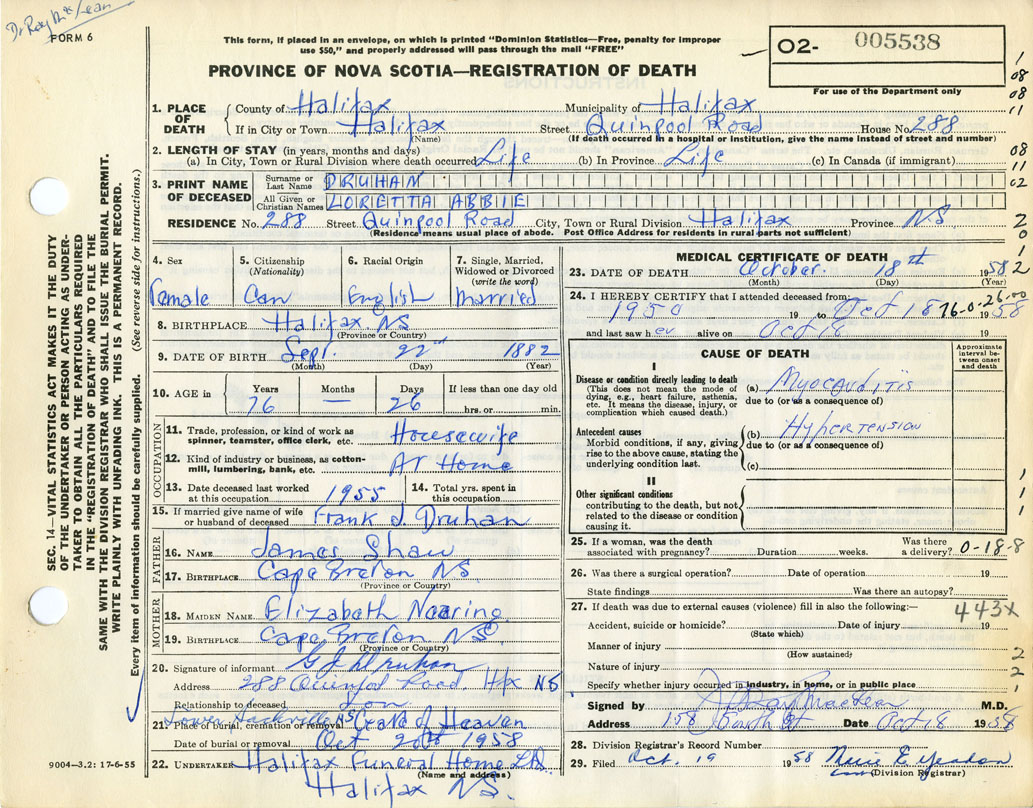 Dr Ray MacLean
FORM 6
This form, if placed in an envelope, on which is printed "Dominion Statistics—Free, penalty for improper
use $50," and properly addressed will pass through the mail "FREE"
O2- 005538
For use of the Department only
PROVINCE OF NOVA SCOTIA—REGISTRATION OF DEATH
1. PLACE OF DEATH County of Halifax Municipality of Halifax
If in City or Town Halifax Street Quinpool Road House No. 288
(Name) (If death occurred in a hospital or institution, give the name instead of street and number)
2. LENGTH OF STAY (in years, months and days)
(a) In City, Town or Rural Division where death occurred Life (b) In Province Life (c) In Canada (if immigrant)
3. PRINT NAME OF DECEASED Surname or Last Name DRUHAN
All Given or Christian Names LORETTA ABBIE
RESIDENCE No. 288 Street Quinpool Road City, Town or Rural Division Halifax Province NS
(Residence means usual place of abode. Post Office Address for residents in rural parts not sufficient)
4. Sex Female
5. Citizenship (Nationality) Can
6. Racial Origin English
7. Single, Married, Widowed or Divorced (write the word) Married
8. BIRTHPLACE Halifax NS
(Province or Country)
9. DATE OF BIRTH Sept. 22nd 1882
(Month) (Day) (Year)
10. AGE in Years 76 Months — Days 26 If less than one day old hrs. or min.
OCCUPATION
11. Trade, profession, or kind of work as spinner, teamster, office clerk, etc. Housewife
12. Kind of industry or business, as cotton-mill, lumbering, bank, etc. At Home
13. Date deceased last worked at this occupation 1955
14. Total yrs. spent in this occupation
15. If married give name of wife or husband of deceased Frank J. Druhan
FATHER
16. NAME James Shaw
17. BIRTHPLACE Cape Breton NS.
(Province or Country)
MOTHER
18. MAIDEN NAME Elizabeth Nearing
19. BIRTHPLACE Cape Breton NS
(Province or Country)
20. Signature of informant G J Druhan
Address 288 Quinpool Road. Hfx NS
Relationship to deceased Son
Lower Sackville NS
21. Place of burial, cremation or removal Gate of Heaven
Date of burial or removal Oct 20th 1958
22. UNDERTAKER Halifax Funeral Home Ltd.
(Name and address)
Halifax NS.
9004—3.2: 17-6-55
MEDICAL CERTIFICATE OF DEATH
23. DATE OF DEATH October. 18th 1958
(Month) (Day) (Year)
24. I HEREBY CERTIFY that I attended deceased from:
1950 19 to Oct 18 1958
76-0-26-00
and last saw her alive on Oct 18 19
CAUSE OF DEATH
Approximate interval between onset and death
I
Disease or condition directly leading to death
(This does not mean the mode of dying, e.g., heart failure, asthenia, etc. It means the disease, injury, or complication which caused death.)
(a) Myocarditis
due to (or as a consequence of)
Antecedent causes
Morbid conditions, if any, giving rise to the above cause, stating the underlying condition last.
(b) Hypertension
due to (or as a consequence of)
(c)
II
Other significant conditions
contributing to the death, but not related to the disease or condition causing it.
25. If a woman, was the death associated with pregnancy? Duration weeks. Was there a delivery? 0-18-8
26. Was there a surgical operation? Date of operation 19
State findings Was there an autopsy?
27. If death was due to external causes (violence) fill in also the following:—
443X
Accident, suicide or homicide? Date of injury 19
(State which)
Manner of injury
(How sustained)
Nature of injury
Specify whether injury occurred in industry, in home, or in public place
Signed by J Ray MacLean M.D.
Address 158 South St Date Oct 18 1958
28. Division Registrar's Record Number
29. Filed Oct. 19 1958
(Division Registrar)
SEC. 14—VITAL STATISTICS ACT MAKES IT THE DUTY
OF THE UNDERTAKER OR PERSON ACTING AS UNDER-
TAKER TO OBTAIN ALL THE PARTICULARS REQUIRED
IN THE "REGISTRATION OF DEATH" AND TO FILE THE
SAME WITH THE DIVISION REGISTRAR WHO SHALL ISSUE THE BURIAL PERMIT.
WRITE PLAINLY WITH UNFADING INK. THIS IS A PERMANENT RECORD.
Every item of information should be carefully supplied. (See reverse side for instructions.)
1
08
08
11
08
11
02
2
0
1
2
1
1
1
2
2
1